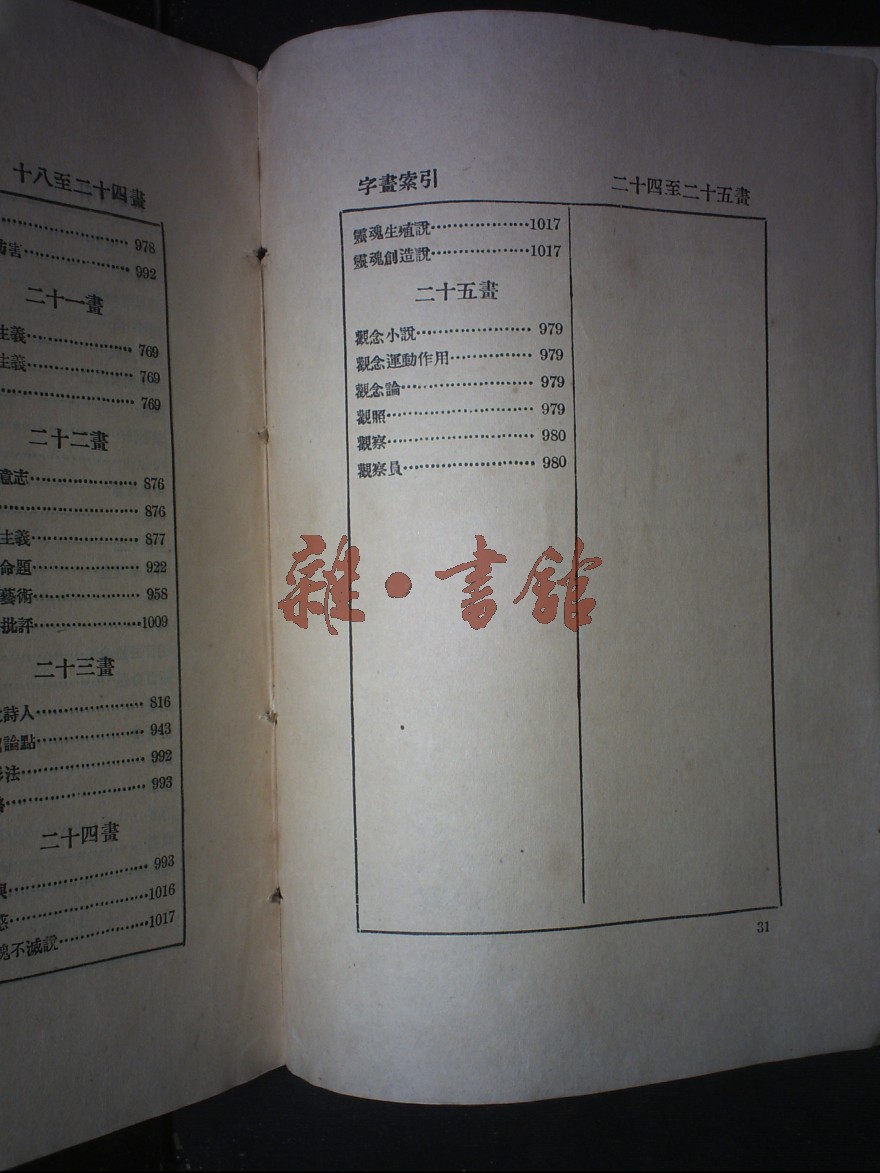 十八至二十四畫
978
992
二十一畫
主義 769
主義 769
769
二十二畫
意志 876
876
主義 877
命題 922
藝術 958
批評 1009
二十三畫
詩人 816
論點 943
法 992
993
二十四畫
993
1016
魂不滅說 1017
字畫索引
二十四至二十五畫
靈魂生殖說 1017
靈魂創造說 1017
二十五畫
觀念小說 979
觀念運動作用 979
觀念論 979
觀照 979
觀察 980
觀察員 980
雜·書館
31